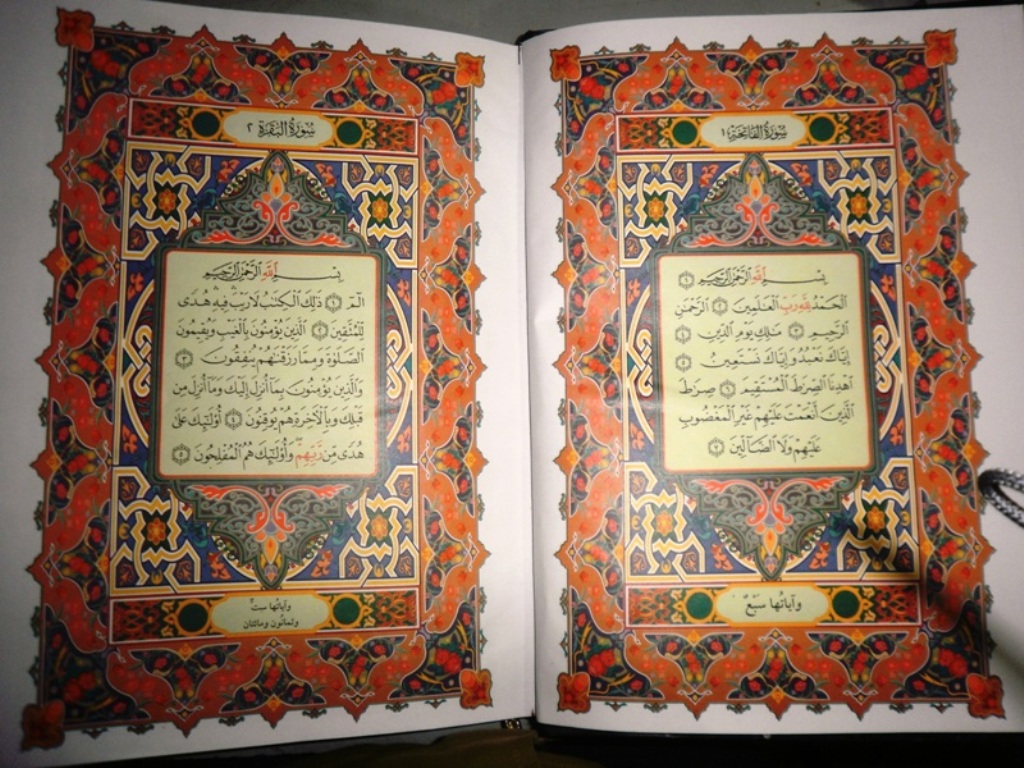 سورة الفاتحة ١
بسم الله الرحمن الرحيم ١
الحمد لله رب العلمين ٢ الرحمن
الرحيم ٣ ملك يوم الدين ٤
إياك نعبد وإياك نستعين ٥
اهدنا الصرط المستقيم ٦ صرط
الذين أنعمت عليهم غير المغضوب
عليهم ولا الضالين ٧
وآياتها سبع
سورة البقرة ٢
بسم الله الرحمن الرحيم
الم ١ ذلك الكتب لا ريب فيه هدى
للمتقين ٢ الذين يؤمنون بالغيب ويقيمون
الصلوة ومما رزقنهم ينفقون ٣
والذين يؤمنون بما أنزل إليك وما أنزل من
قبلك وبالآخرة هم يوقنون ٤ أولئك على
هدى من ربهم وأولئك هم المفلحون ٥
وآياتها ست
وثمانون ومائتان